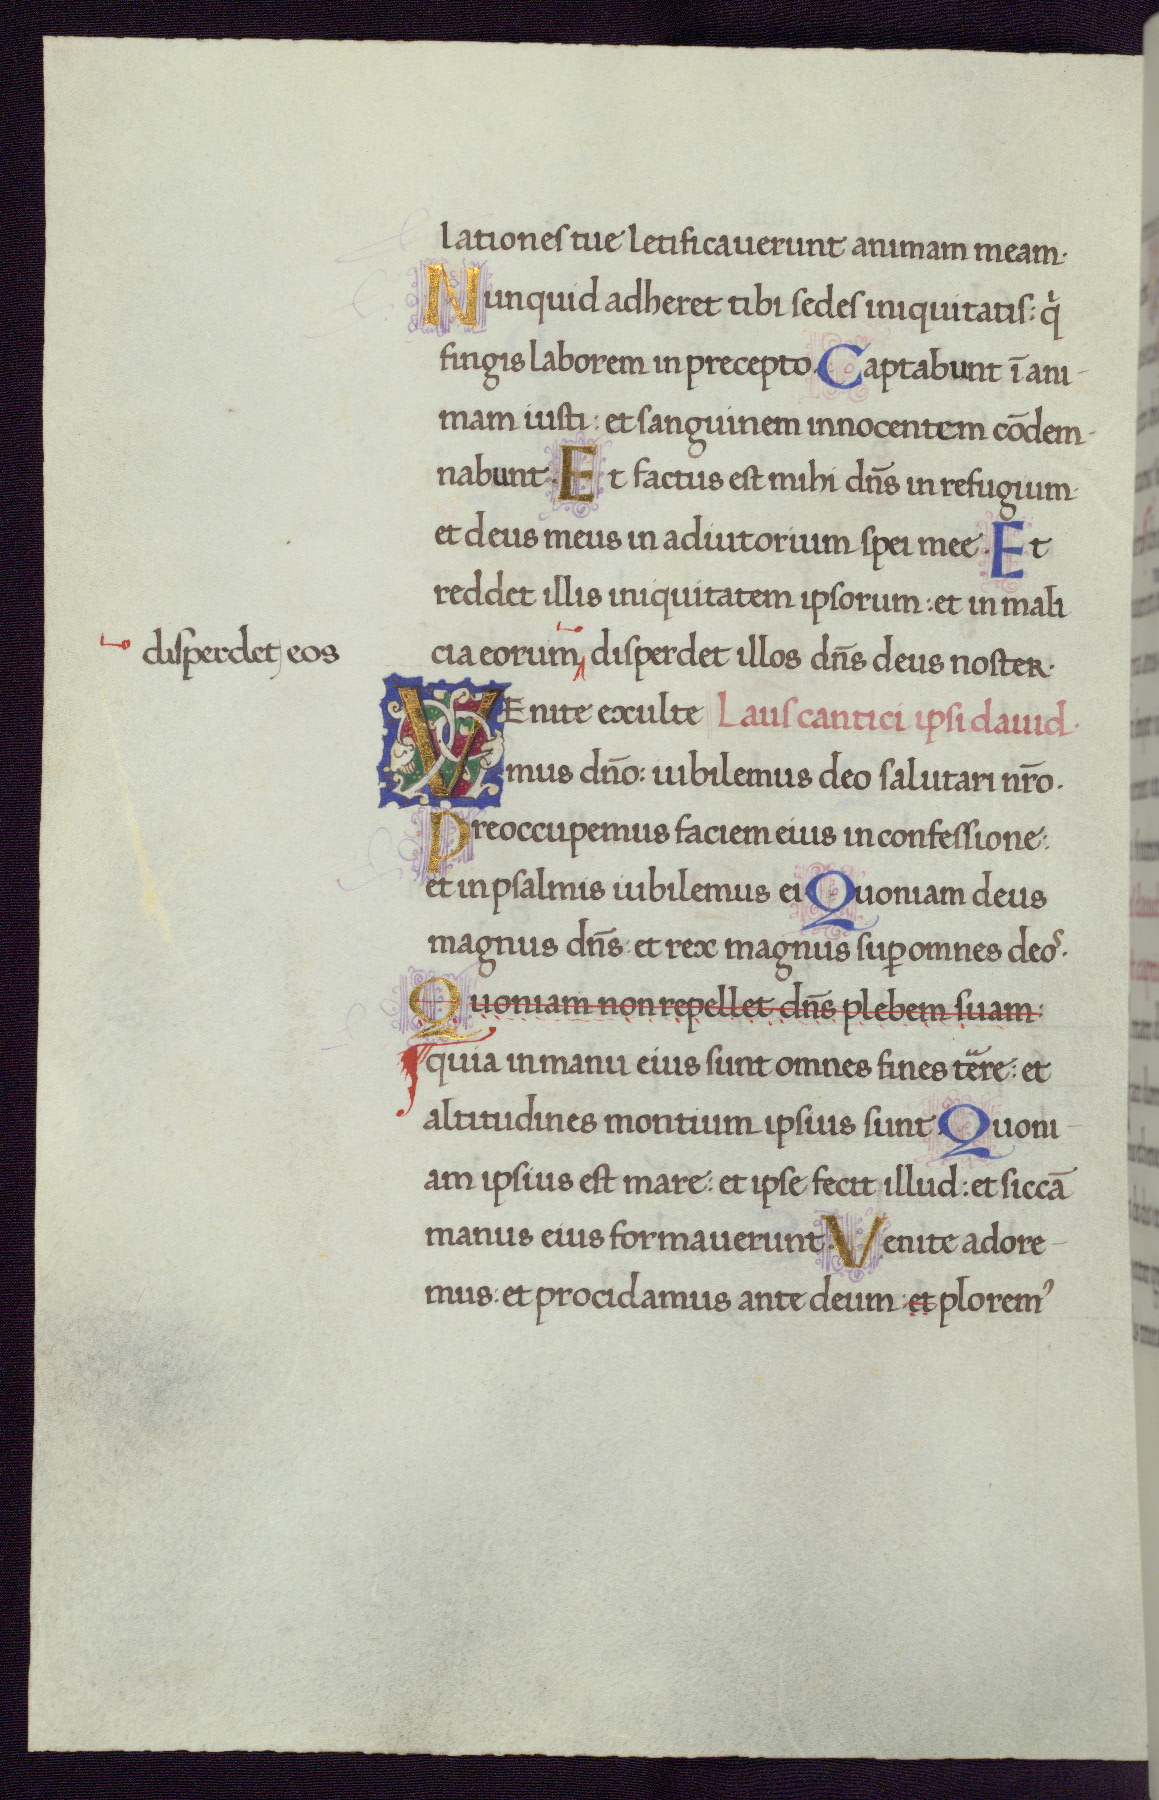 lationes tue letificauerunt animam meam·
Nunquid adheret tibi sedes iniquitatis: q̇
fingis laborem in precepto. Captabunt ī ani-
mam iusti: et sanguinem innocentem cōdem-
nabunt. Et factus est mihi dn̄s in refugium·
et deus meus in adiutorium spei mee. Et
reddet illis iniquitatem ipsorum: et in mali
disperdet eos
cia eorum, disperdet illos dn̄s deus noster·
VEnite exulte Laus cantici ipsi dauid·
mus dn̄o: iubilemus deo salutari nr̄o.
Preoccupemus faciem eius in confessione:
et in psalmis iubilemus ei Quoniam deus
magnus dn̄s: et rex magnus sup̱ omnes deoˢ.
Quoniam non repellet dn̄s plebem suam:
quia in manu eius sunt omnes fines tēre: et
altitudines montium ipsius sunt. Quoni-
am ipsius est mare: et ipse fecit illud: et siccā
manus eius formauerunt. Venite adore-
mus: et procidamus ante deum: et ploremꝰ